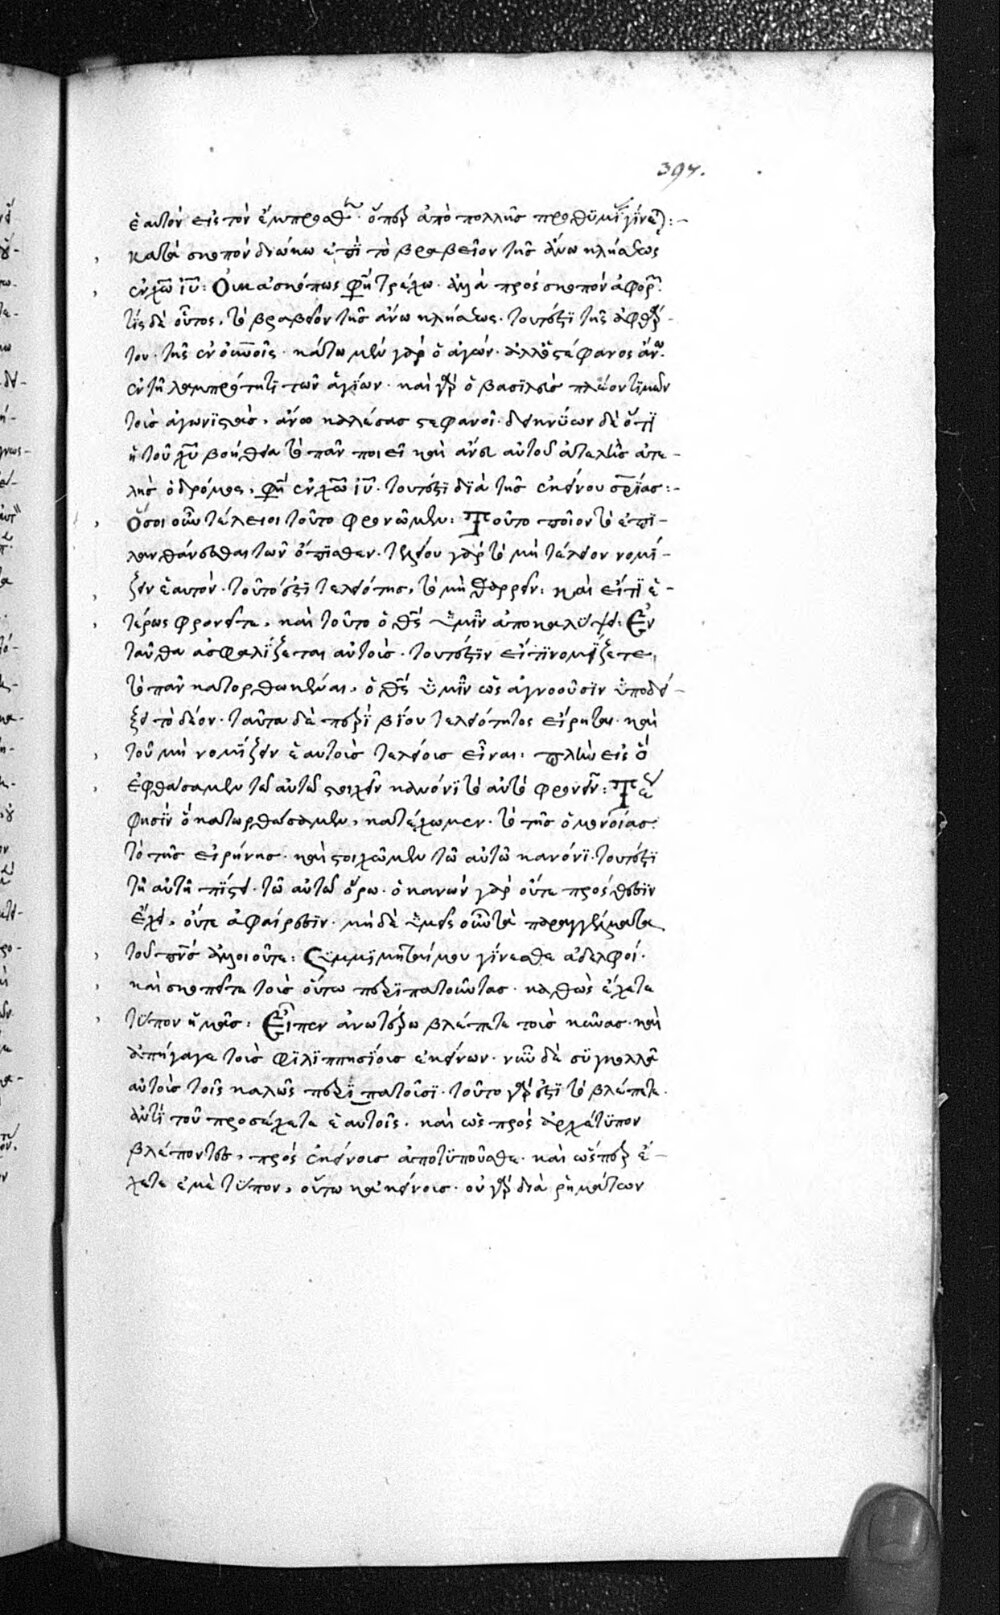 397.
ἑαυτὸν εἰς τὸν ἔμπροσθεν· ὅπερ ἀπὸ πολλῆς προθυμίας γίνεται:-
κατὰ σκοπὸν διώκω ἐπὶ τὸ βραβεῖον τῆς ἄνω κλήσεως
ἐν χω ιυ: Οὐκ ἀσκόπως φη τρέχω· ἀλλὰ πρὸς σκοπὸν ἀφορ
τίς δὲ οὗτος, τὸ βραβεῖον τῆς ἄνω κλήσεως· τουτέστι τῆς
τον· τῆς ἐν οὐνοις· κάτω μὲν γὰρ ὁ ἀγών· ἀλλ' ὁ στέφανος ἄνω
ἐν τῇ λαμπρότητι τῶν ἁγίων· καὶ γὰρ ὁ βασιλεὺς πλέον τιμῶν
τοὺς ἀγωνιστὰς, ἄνω καλέσας στεφανοῖ· δεικνύων δὲ ὅτι
ἡ τοῦ χυ βοήθεια τὸ πᾶν ποιεῖ καὶ ἄνευ αὐτοῦ ἀτελὴς ἀτε-
λὴς ὁ δρόμος, φη ἐν χω ιυ· τουτέστι διὰ τῆς ἐκείνου σριας:-
Ὅσοι οὖν τέλειοι τοῦτο φρονῶμεν: Τοῦτο ποῖον τὸ ἐπι-
λανθάνεσθαι τῶν ὄπισθεν· τελείου γὰρ τὸ μὴ τέλειον νομί-
ζειν ἑαυτόν· τοῦτό ἐστι τελειότης, τὸ μὴ θαρρεῖν: καὶ εἴ τι ἑ-
τέρως φρονεῖτε, καὶ τοῦτο ὁ θς ὑμῖν ἀποκαλύψει: Ἐν
ταῦθα ἀσφαλίζεται αὐτοὺς· τουτέστιν εἴ τι νομίζετε,
τὸ πᾶν κατορθωκέναι, ὁ θς ὑμῖν ὡς ἀγνοοῦσιν ὑποδεί-
ξει τὸ δέον· ταῦτα δὲ περὶ βίου τελειότητος εἴρηται· καὶ
τοῦ μὴ νομίζειν ἑαυτοὺς τελείους εἶναι· πλὴν εἰς ὃ
ἐφθάσαμεν τῷ αὐτῷ στοιχεῖν κανόνι τὸ αὐτὸ φρονεῖν: Τέως
φησὶν ὃ κατωρθώσαμεν, κατέχωμεν· τὸ τῆς ὁμονοίας·
τὸ τῆς εἰρήνης· καὶ στοιχῶμεν τῷ αὐτῷ κανόνι· τουτέστι
τῇ αὐτῇ πίστει· τῷ αὐτῷ ὅρῳ· ὁ κανὼν γὰρ οὔτε πρόσθεσιν
ἔχει, οὔτε ἀφαίρεσιν· μὴ δὲ ὑμεῖς οὖν τὰ παραγγέλματα
τοῦ πνς ἀλλοιοῦτε: Συμμιμηταί μου γίνεσθε ἀδελφοί·
καὶ σκοπεῖτε τοὺς οὕτω περιπατοῦντας· καθὼς ἔχετε
τύπον ἡμᾶς: Εἶπεν ἀνωτέρω βλέπετε τοὺς κύνας· καὶ
ἀπήγαγε τοὺς φιλιππησίους ἐκείνων· νῦν δὲ συγκολλᾶ
αὐτοὺς τοῖς καλῶς περιπατοῦσι· τοῦτο γάρ ἐστι τὸ βλέπετε·
ἀντὶ τοῦ προσέχετε ἑαυτοῖς· καὶ ὡς πρὸς ἀρχέτυπον
βλέποντες, πρὸς ἐκείνους ἀποτυποῦσθε· καὶ ὥσπερ ἔ-
χετε ἐμὲ τύπον, οὕτω κἀκείνους· οὐ γὰρ διὰ ῥημάτων